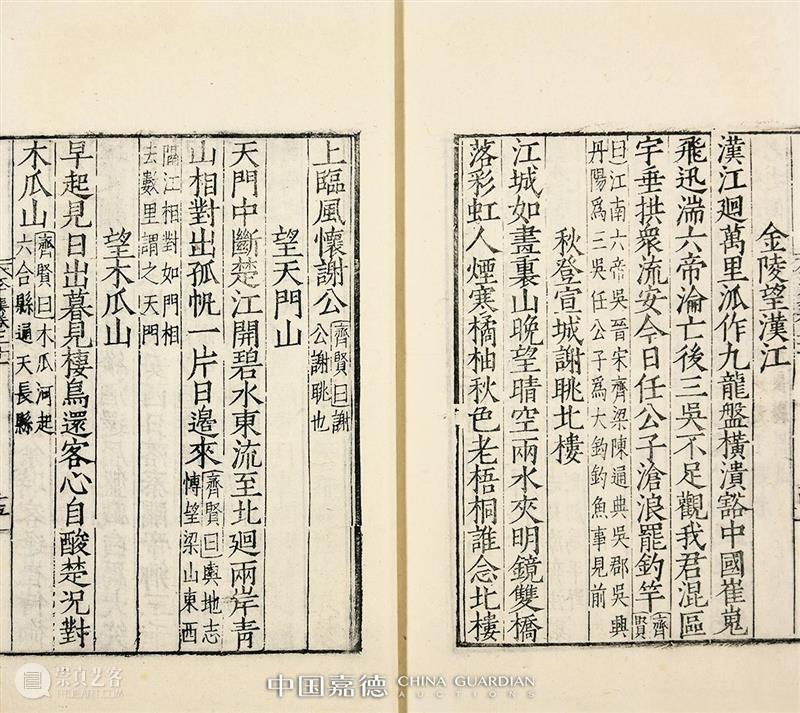 金陵望漢江
漢江廻萬里派作九龍盤橫潰豁中國崔嵬
飛迅湍六帝淪亡後三吳不足觀我君混區
宇垂拱衆流安今日任公子滄浪罷釣竿齊賢
曰江南六帝吳晉宋齊梁陳通典吳郡吳興
丹陽爲三吳任公子爲大鈎釣魚事見前
秋登宣城謝朓北樓
江城如畫裏山晚望晴空兩水夾明鏡雙橋
落彩虹人煙寒橘柚秋色老梧桐誰念北樓
上臨風懷謝公齊賢曰謝
公謝朓也
望天門山
天門中斷楚江開碧水東流至北廻兩岸青
山相對出孤帆一片日邊來齊賢曰輿地志
博望梁山東西
隔江相對如門相
去數里謂之天門
望木瓜山
早起見日出暮見棲鳥還客心自酸楚況對
木瓜山齊賢曰木瓜河起
六合縣過天長縣
崇真艺客
TRUEART.COM
中国嘉德 CHINA GUARDIAN
AUCTIONS